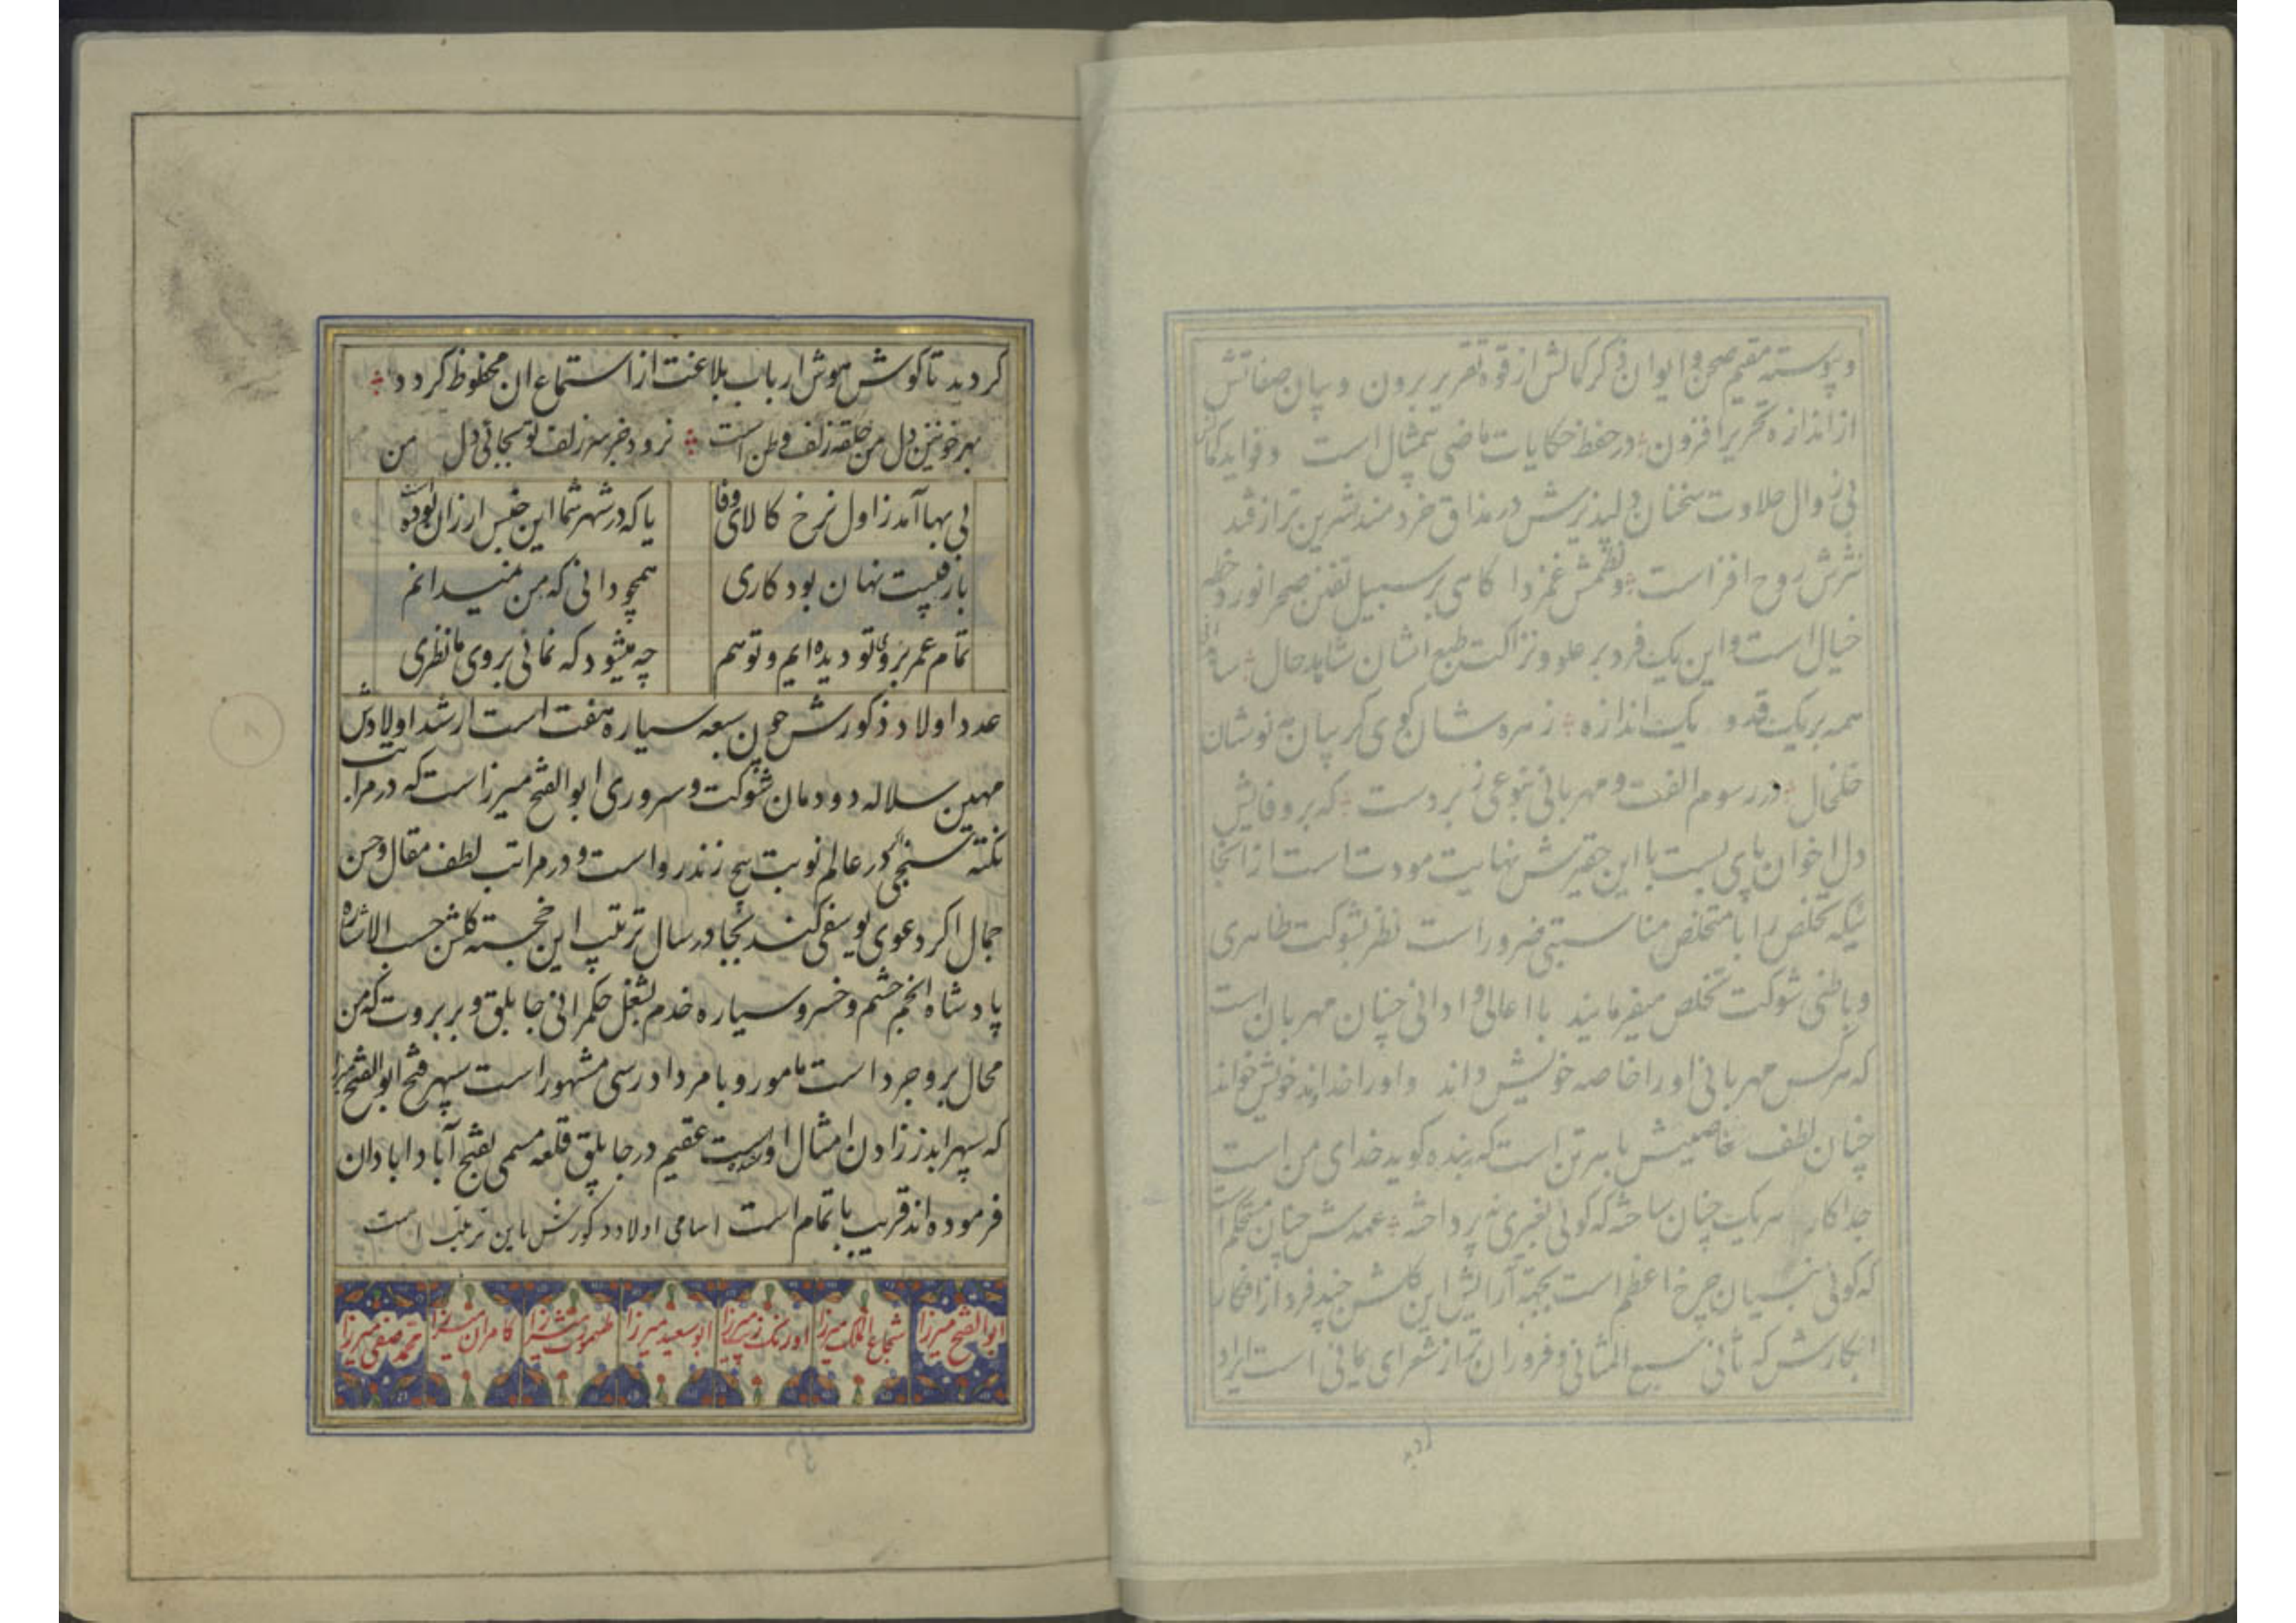 و پیوسته مقیم صحن و ایوان ذکر کمالش از قوه تقریر برون و بیان صفاتش
از اندازه تحریر افزون در حفظ حکایات ماضی بیمثال است و فواید
بی زوال حلاوت سخنان دلپذیرش در مذاق خردمند شیرین تر از قند
نثرش روح افزاست و نظمش غمزدا کاهی بر سبیل تفنن صحرا نورد
خیال است و این یک فرد بر علو و نزاکت طبع ایشان شاهد حال
همه بر یک قد و یک اندازه زهره شان کوی کریبان مه نوشان
خلخال در رسوم الفت و مهربانی بنوعی زبردست که بر وفایش
دل اخوان پای بست با این حقیرش نهایت مودت است از انجا
نیکه تخلص را با متخلص مناسبتی ضرور است نظر بشوکت ظاهری
و باطنی شوکت تخلص میفرمایند با اعالی و ادانی چنان مهربان است
که هر کس مهربانی او را خاصه خویش داند و او را خداوند خویش خواند
چنان لطف خاصیش با هر تن است که هر بنده کوید خدای من است
جدا کار هر یک چنان ساخته که کوئی بغیری نپرداخته عهدش چنان مستحکم است
که کوئی بنسیان چرخ اعظم است بجهة آرایش این کلشن چند فرد از افکار
ابکارش که ثانی سبع المثانی و فروزان تر از شعرای یمانی است ایراد
کردید تا کوش هوش ارباب بلاغت از استماع ان محظوظ کردد
بهر خونین دل من حلقه زلف وطن است نرود جز سر زلف تو بجائی دل من
بی بها آمد ز اول نرخ کالای وفا یا که در شهر شما این جنس ارزان بوده است
با رقیبت نهان بود کاری همچو دانی که من نمیدانم
تمام عمر بروی تو دیده ایم و تو هم چه میشود که نمائی بروی ما نظری
عدد اولاد ذکورش چون سبعه سیاره هفت است ارشد اولادش
مهین سلاله دودمان شوکت و سروری ابوالفتح میرزاست که در مراتب
نکته سنجی در عالم نوبت پنج زند رواست و در مراتب لطف مقال و حسن
جمال اکر دعوی یوسفی کند بجا در سال ترتیب این خجسته کلشن حسب الاشاره
پادشاه انجم حشم و خسرو سیاره خدم بشغل حکمرانی جابلق و بربرود که من
محال بروجرد است مامور و با مردادرسی مشهور است سپهر فتح ابوالفتح میرزا
که سپهر ابد ز زادن امثال اوست عقیم در جابلق قلعه مسمی بفتح آباد ابادان
فرموده اند قریب باتمام است اسامی اولاد ذکورش باین ترتیب است
ابوالفتح میرزا شجاع الملک میرزا اورنک زیب میرزا ابوسعید میرزا طهمورث میرزا کامران میرزا محمد صفی میرزا